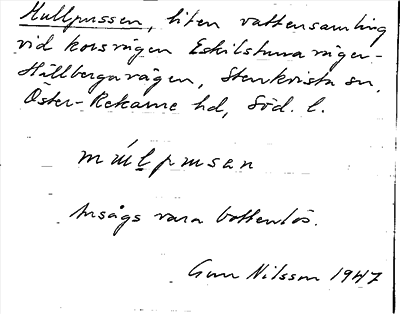 Mullpussen, liten vattensamling
vid korsvägen Eskilstunavägen-
Hällbergavägen, Stenkvista sn,
Öster-Rekarne hd, Söd. l.
Ansågs vara bottenlös.
Gun Nilsson 1947